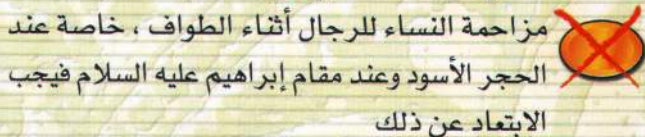 مزاحمة النساء للرجال أثناء الطواف ، خاصة عند
الحجر الأسود وعند مقام إبراهيم عليه السلام فيجب
الابتعاد عن ذلك